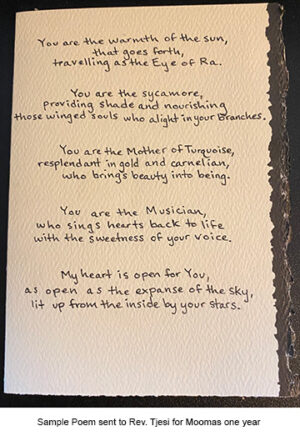 You are the warmth of the sun,
that goes forth,
travelling as the Eye of Ra.
You are the sycamore,
providing shade and nourishing
those winged souls who alight in your Branches.
You are the Mother of Turquoise,
resplendent in gold and carnelian,
who brings beauty into being.
You are the Musician,
who sings hearts back to life
with the sweetness of your voice.
My heart is open for You,
as open as the expanse of the sky,
lit up from the inside by your stars.
Sample Poem sent to Rev. Tjesi for Moomas one year